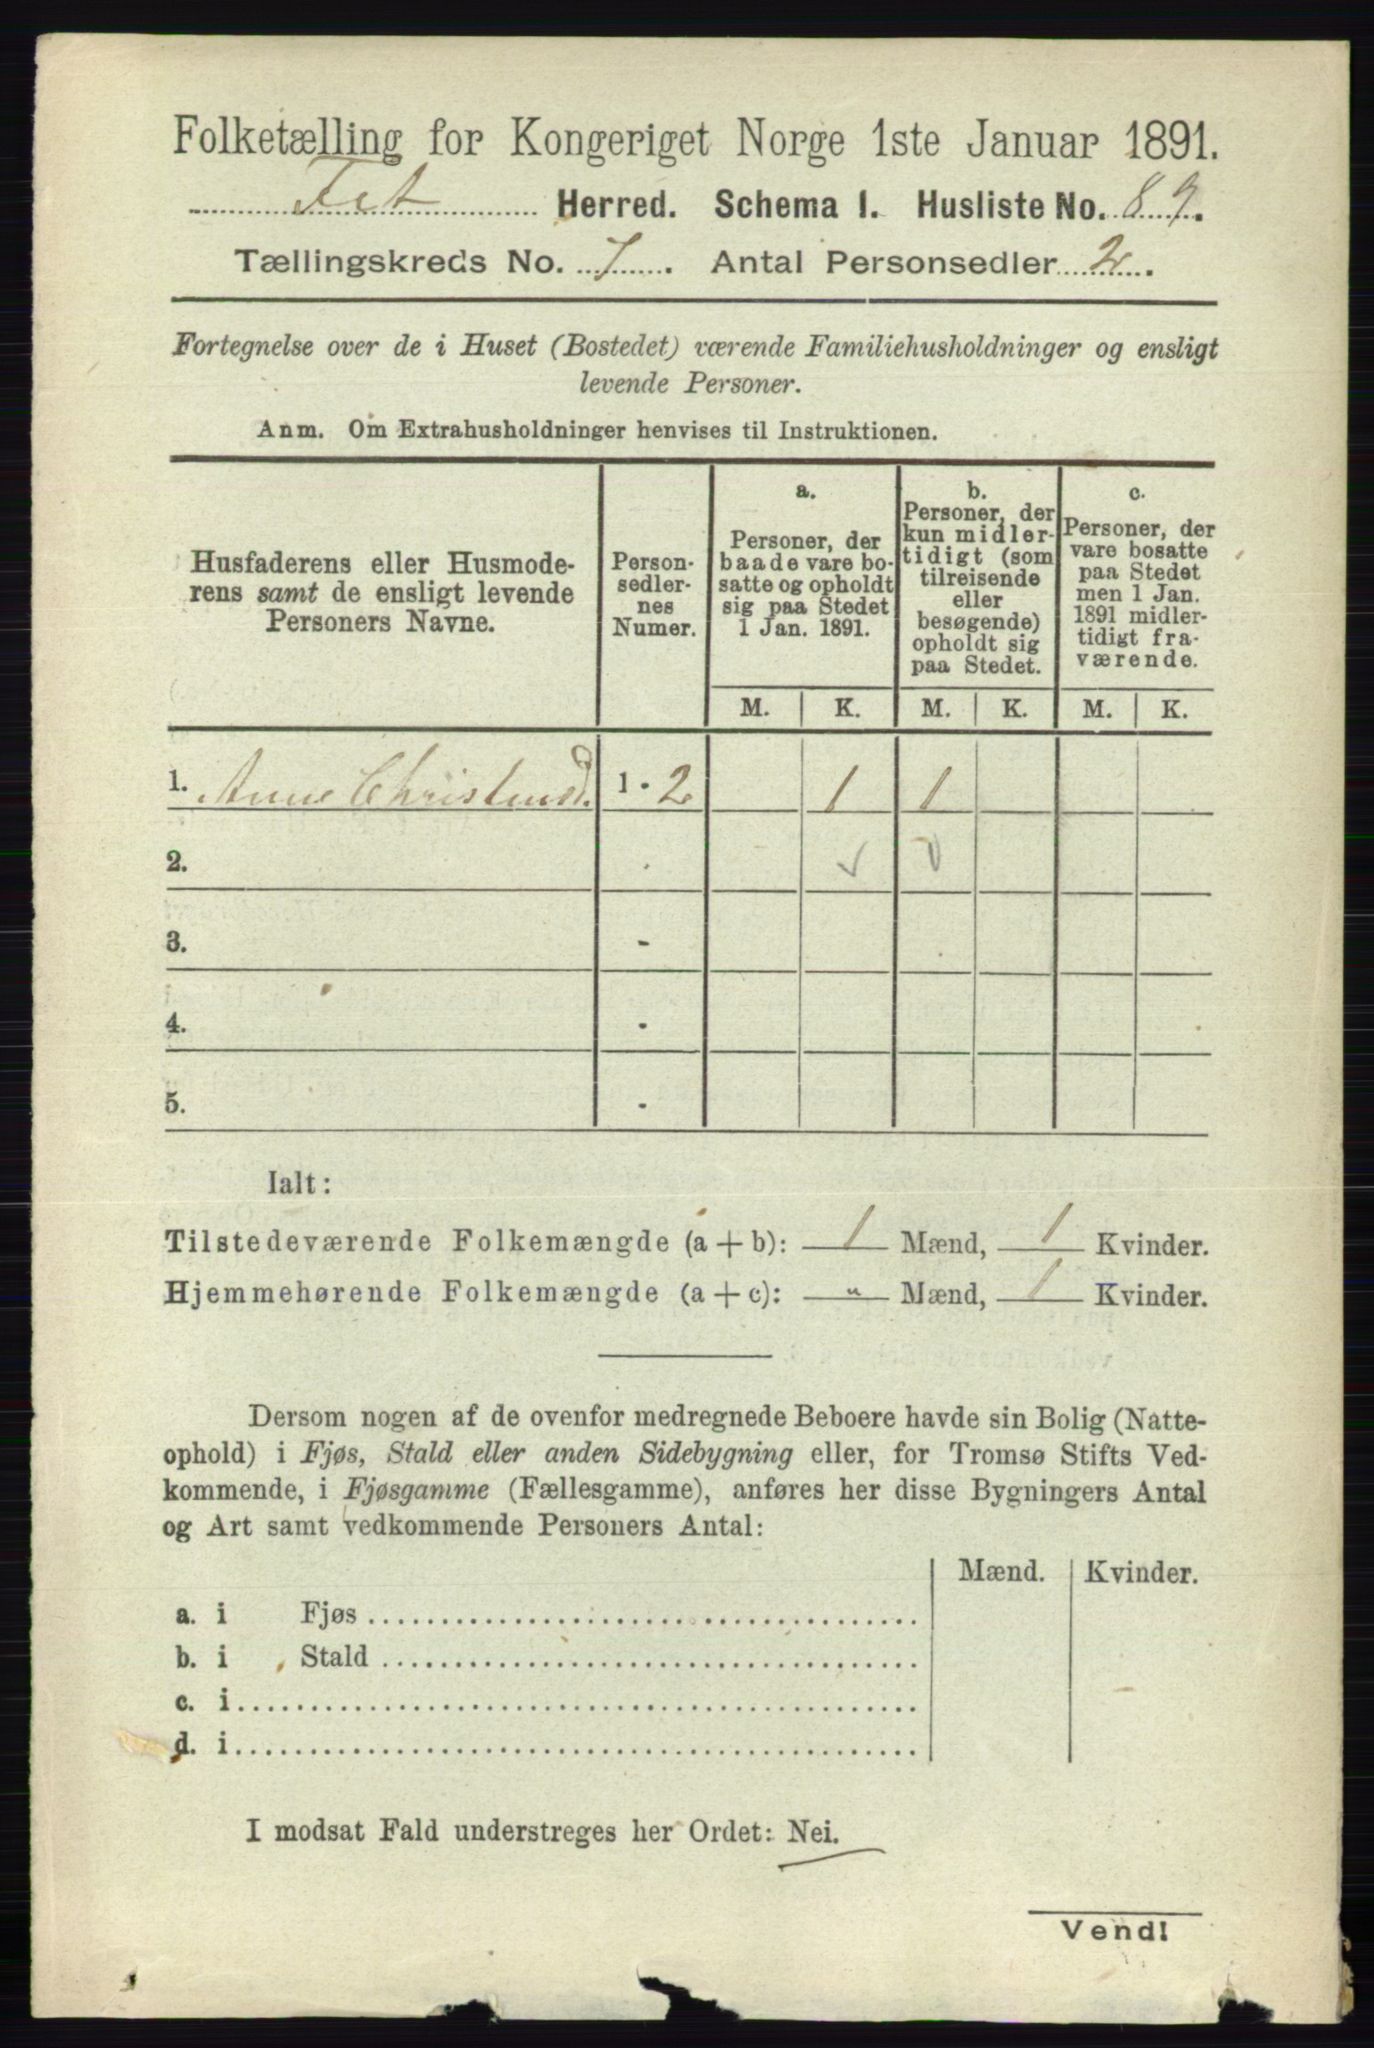 Folketælling for Kongeriget Norge 1ste Januar 1891.
Fet Herred. Schema 1. Husliste No. 89.
Tællingskreds No. 7. Antal Personsedler 2.
Fortegnelse over de i Huset (Bostedet) værende Familiehusholdninger og ensligt
levende Personer.
Anm. Om Extrahusholdninger henvises til Instruktionen.
Husfaderens eller Husmode-
rens samt de ensligt levende
Personers Navne.
Person-
sedler-
nes
Numer.
a.
Personer, der
baade vare bo-
satte og opholdt
sig paa Stedet
1 Jan. 1891.
b.
Personer, der
kun midler-
tidigt (som
tilreisende
eller
besøgende)
opholdt sig
paa Stedet.
c.
Personer, der
vare bosatte
paa Stedet
men 1 Jan.
1891 midler-
tidigt fra-
værende.
M. K. M. K. M. K.
1. Anne Christensd. 1 - 2 1 1
2. -
3. -
4. -
5. -
Ialt:
Tilstedeværende Folkemængde (a + b): 1 Mænd, 1 Kvinder.
Hjemmehørende Folkemængde (a + c): " Mænd, 1 Kvinder.
Dersom nogen af de ovenfor medregnede Beboere havde sin Bolig (Natte-
ophold) i Fjøs, Stald eller anden Sidebygning eller, for Tromsø Stifts Ved-
kommende, i Fjøsgamme (Fællesgamme), anføres her disse Bygningers Antal
og Art samt vedkommende Personers Antal:
Mænd. Kvinder.
a. i Fjøs
b. i Stald
c. i
d. i
I modsat Fald understreges her Ordet: Nei.
Vend!